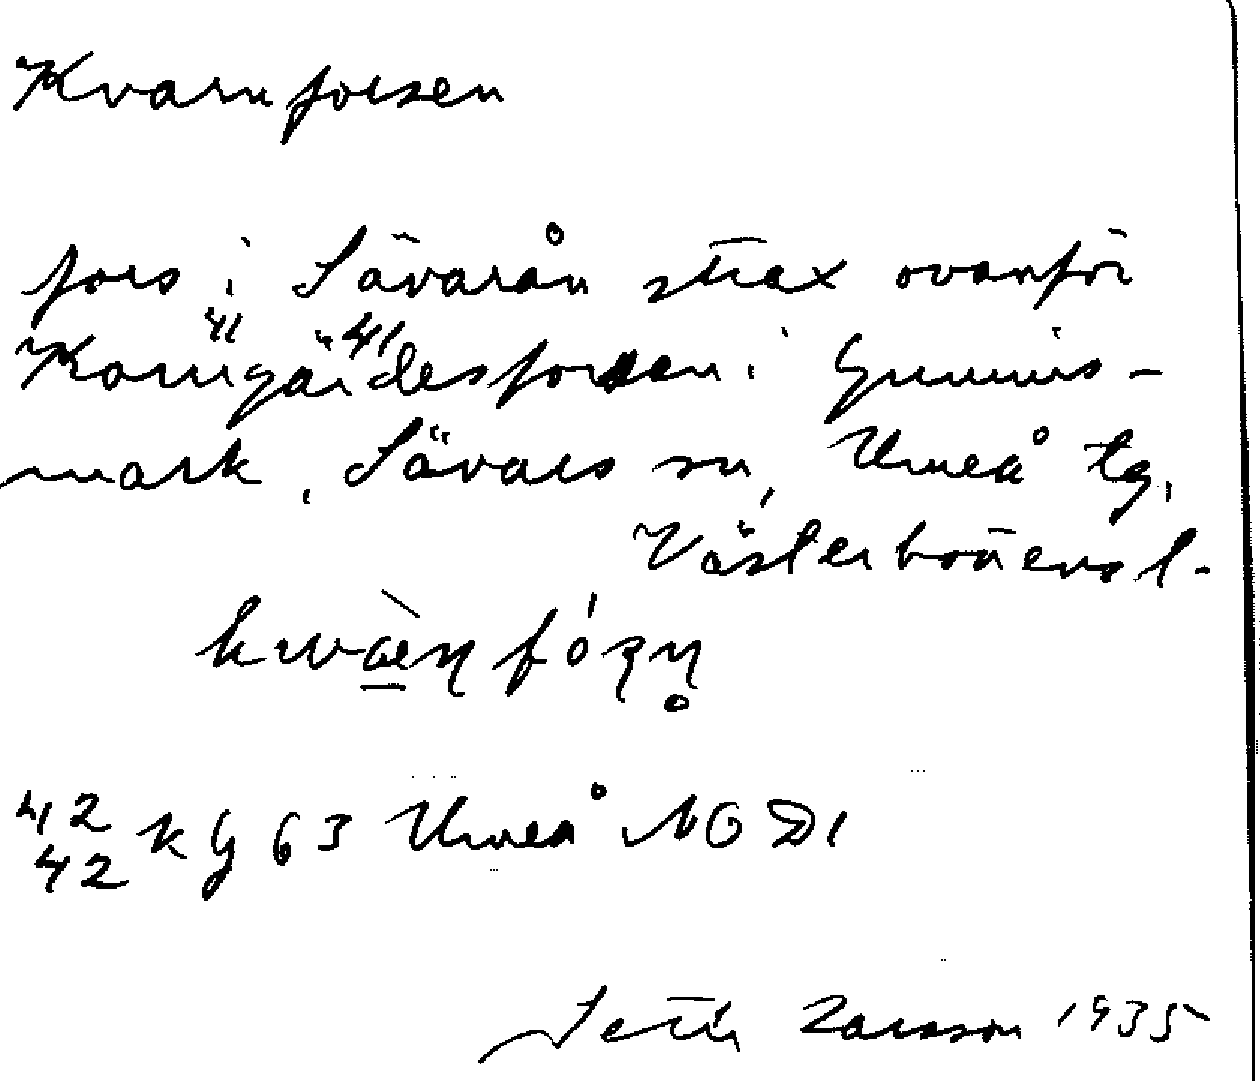 Kvarnforsen
fors i Sävarån strax ovanför
Korngärdesforsen i Gunnis-
mark, Sävars sn, Umeå tg,
Västerbottensl.
42 K G 63 Umeå NO D1
42
Seth Larsson 1935